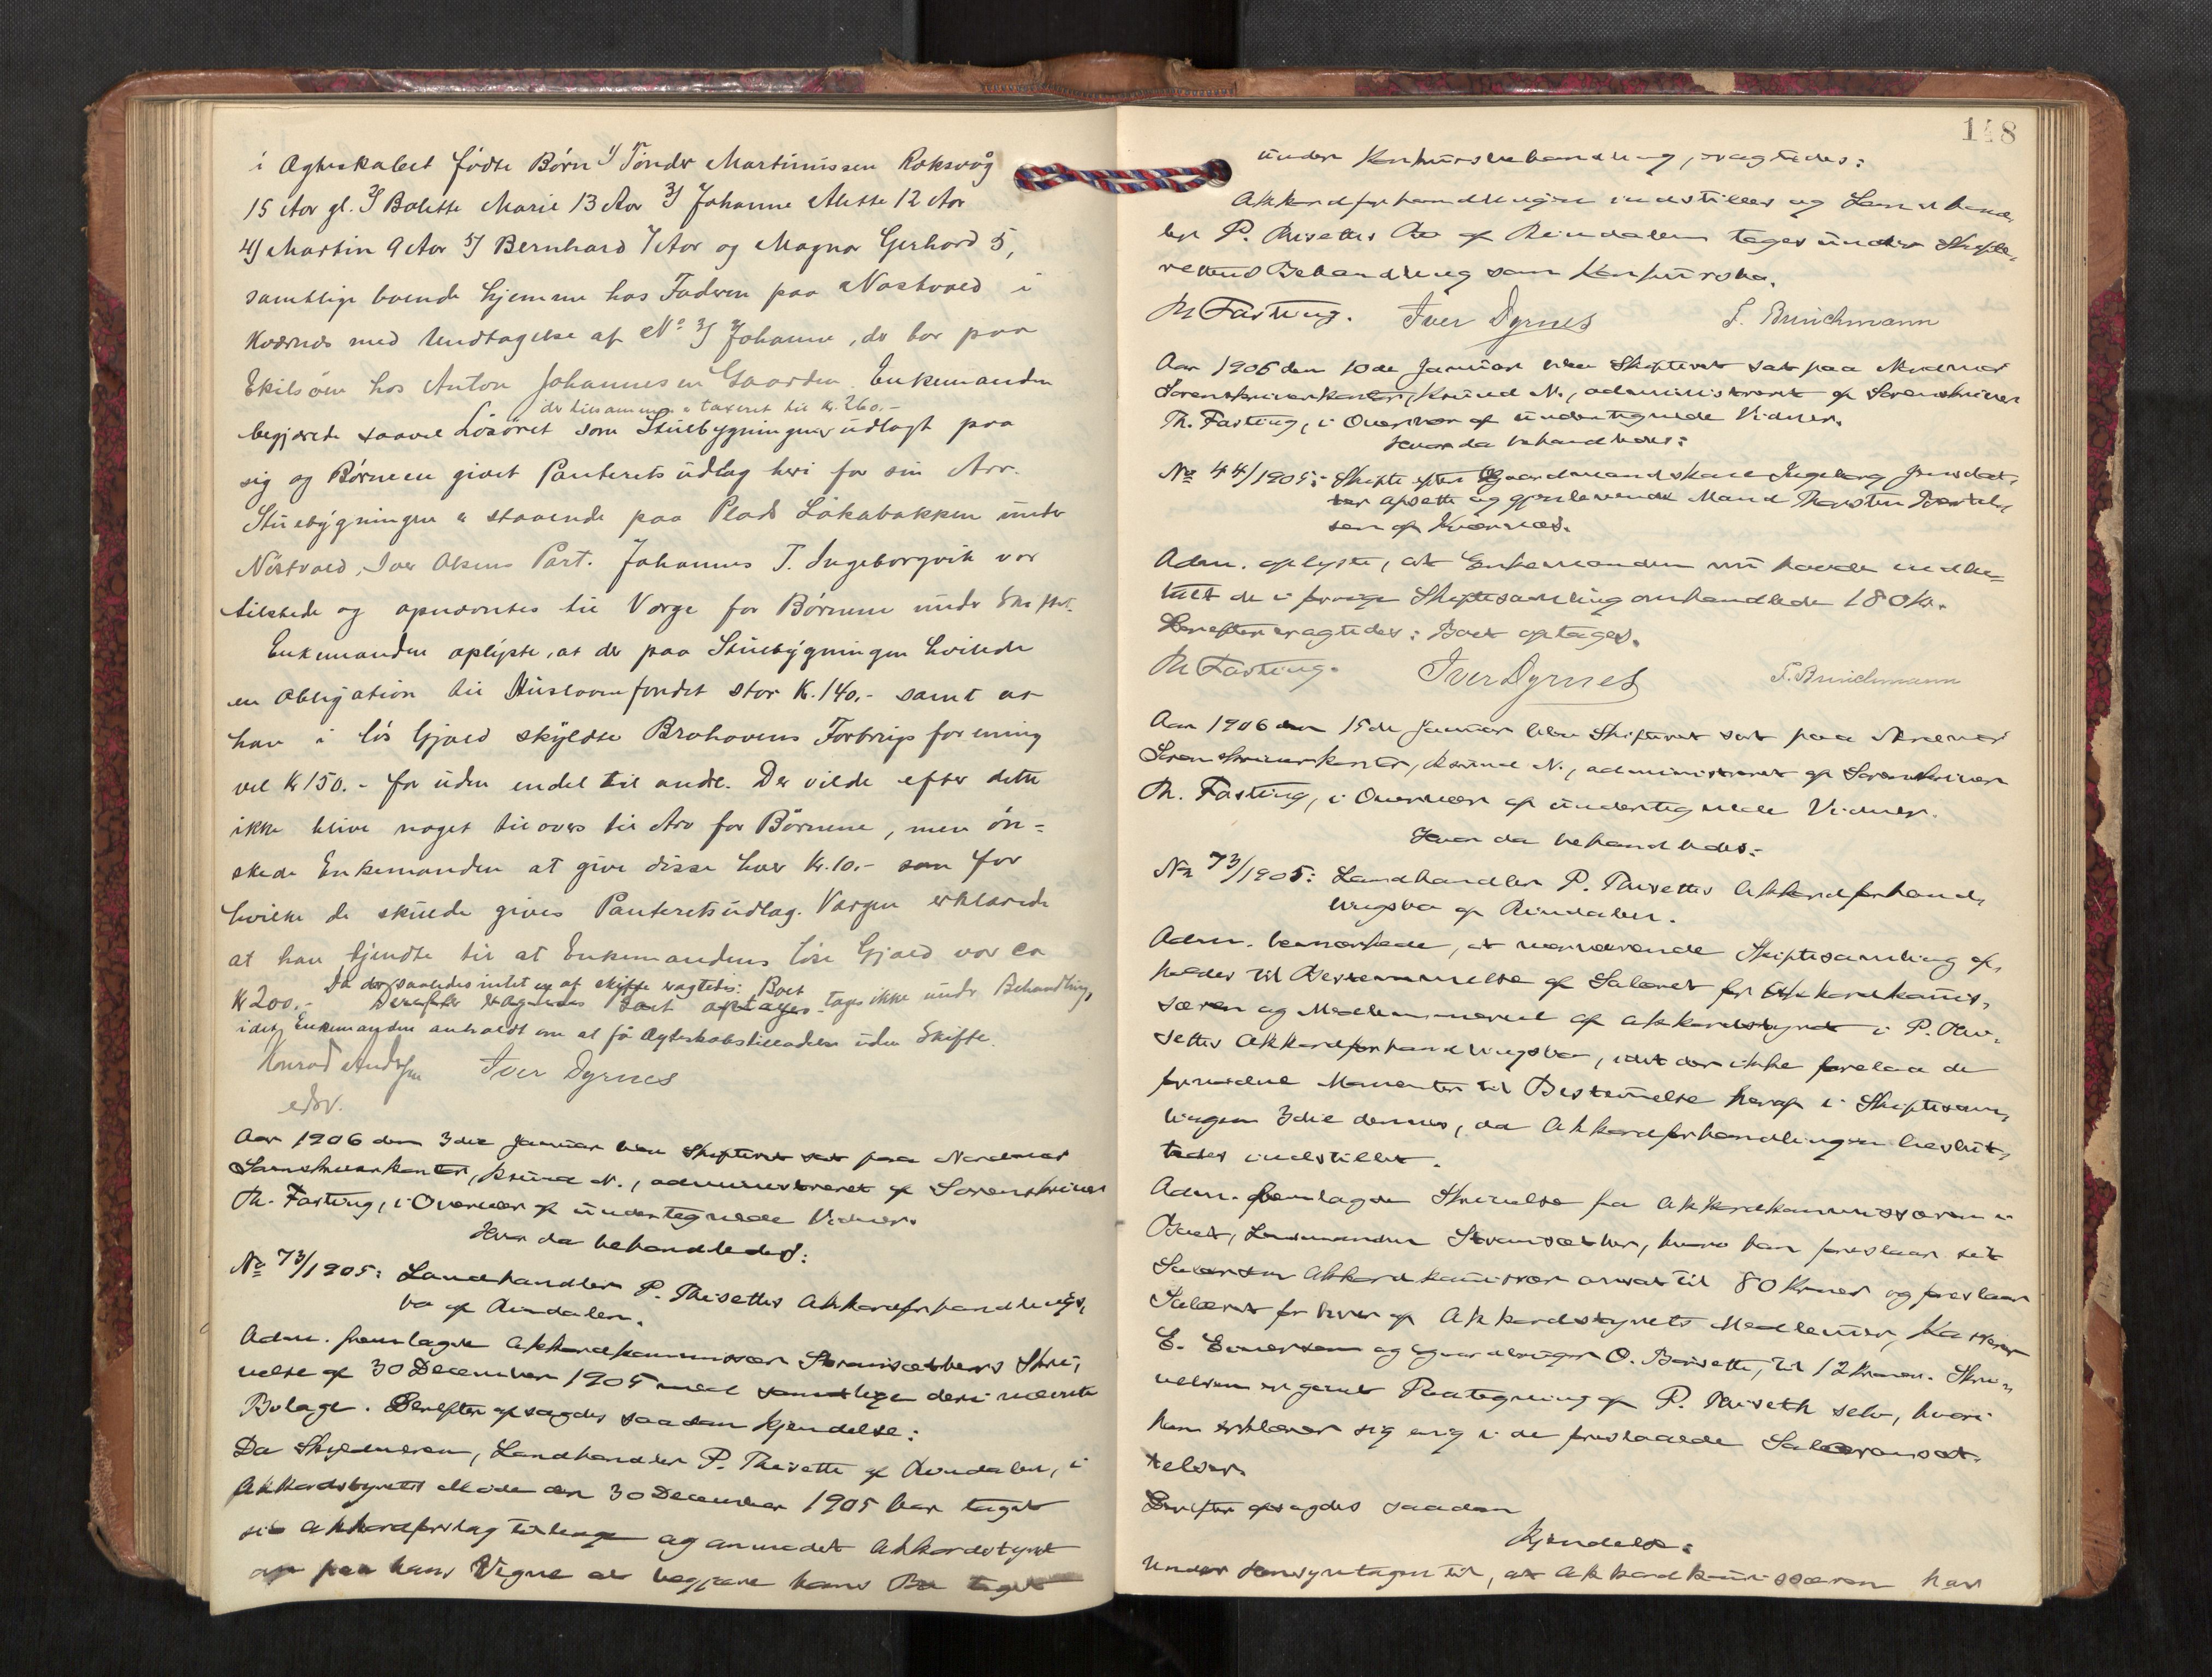 i Ægteskabet födte Börn 1) Tönder Martinussen Roksvåg
15 Aar gl. 2) Bolette Marie 13 Aar 3) Johanne Alette 12 Aar
4) Martin 9 Aar 5) Bernhard 7 Aar og Magnar Gerhard 5,
samtlige boende hjemme hos Faderen paa Nastvold i
Kvernes med Undtagelse af No 3) Johanne, der bor paa
Ekilsöen hos Anton Johannesen Gaarden. Enkemanden
der tilsammen er taxeret til Kr. 260.-
begjærede saavel Lösöret som Stuebygningen udlagt paa
sig og Börnene givet Panterets udlag heri for sin Arv.
Stuebygningen er staaende paa Plads Låkabakken under
Nöstvold, Iver Olsens Part. Johannes T. Ingeborgvik var
tilstede og opnævntes til Værge for Börnene under Skiftet.
Enkemanden oplyste, at der paa Stuebygningen hvilede
en Obligation til Huslaanefondet stor Kr. 140.- samt at
han i lös Gjæld skyldte Brohavens Forbrugsforening
vel Kr 150.- foruden endel til andre. Der vilde efter dette
ikke blive noget tilovers til Arv for Börnene, men ön-
skede Enkemanden at give disse hver Kr. 10.- som for
hvilke de skulde gives Panteretsudlag. Værgen erklærede
at han kjendte til at Enkemandens löse Gjæld var ca
Da der saaledes intet er at skifte eragtedes: Boet
Kr 200.- Derefter eragtedes Boet optages. tages ikke under Behandling,
idet Enkemanden anholdt om at få Ægteskabstilladelse uden Skifte.
Konrad Andersen Iver Dyrnes
edsv.
Aar 1906 den 3die Januar blev Skifteret sat paa Nordmør
Sorenskriverkontor, Ksund N., administreret af Sorenskriver
Th. Fasting, i Overvær af undertegnede Vidner.
Hvor da behandledes:
No 73/1905: Landhandler P. Thisettes Akkordforhandlings,
bo af Rindalen.
Adm. fremlagde Akkordkommissær Strømsætbers Skri,
velse af 30 December 1905 med samtlige deri nævnte
Bilage. Derefter afsagdes saadan Kjendelse:
Da Skyldneren, Landhandler P. Thisette af Rindalen, i
Akkordstyrets Møde den 30 December 1905 har taget
sit Akkordforslag tilbage og anmodet Akkordstyret
om paa hans Vegne at begjære hans Bo taget
148
under Konkursbehandling, eragtedes:
Akkordforhandlingen indstilles og Landhand,
ler P. Thisettes Bo af Rindalen tages under Skifte,
rettens Behandling som Konkursbo.
Th Fasting. Iver Dyrnes S. Brinchmann
Aar 1906 den 10de Januar blev Skifteret sat paa Nordmør
Sorenskriverkontor, Ksund N., administreret af Sorenskriver
Th. Fasting, i Overvær af undertegnede Vidner.
Hvor da behandledes:
No 44/1905: Skifte efter Gaardmandskone Ingeborg Jensdat,
ter Opsette og gjenlevende Mand Thorsten Bertel,
sen af Kvernes.
Adm. oplyste, at Enkemanden nu havde indbe=
talt de i forrige Skiftesamling omhandlede 180 Kr.
Derefter eragtedes: Boet optages.
Th Fasting. Iver Dyrnes S. Brinchmann
Aar 1906 den 15de Januar blev Skifteret sat paa Nordmør
Sorenskriverkontor, Ksund N., administreret af Sorenskriver
Th. Fasting, i Overvær af undertegnede Vidner.
Hvor da behandledes:
No 73/1905: Landhandler P. Thisettes Akkordforhand,
lingsbo af Rindalen.
Adm. bemærkede, at nærværende Skiftesamling af,
holdes til Bestemmelse af Salæret for Akkordkomis,
særen og Medlemmerne af Akkordstyret i P. Thi,
settes Akkordforhandlingsbo, idet der ikke forelaa de
fornødne Momenter til Bestemmelse heraf i Skiftesam,
lingen 3die dennes, da Akkordforhandlingen beslut,
tedes indstillet.
Adm. fremlagde Skrivelse fra Akkordkommissæren i
Boet, Lensmanden Strømsætber, hvori han foreslaar sit
Salær som Akkordkomissær ansat til 80 Kroner og foreslaar
Salæret for hver af Akkordstyrets Medlemer, Kasserer
E. Einersen og Gaardbruger O. Børsette, til 12 Kroner. Skri,
velsen er given Paategning af P. Thiseth selv, hvori
han erklærer sig enig i de foreslaaede Salæransæt,
telser.
Derefter afsagdes saadan
Kjendelse:
Under Hensyntagen til, at Akkordkomissæren har